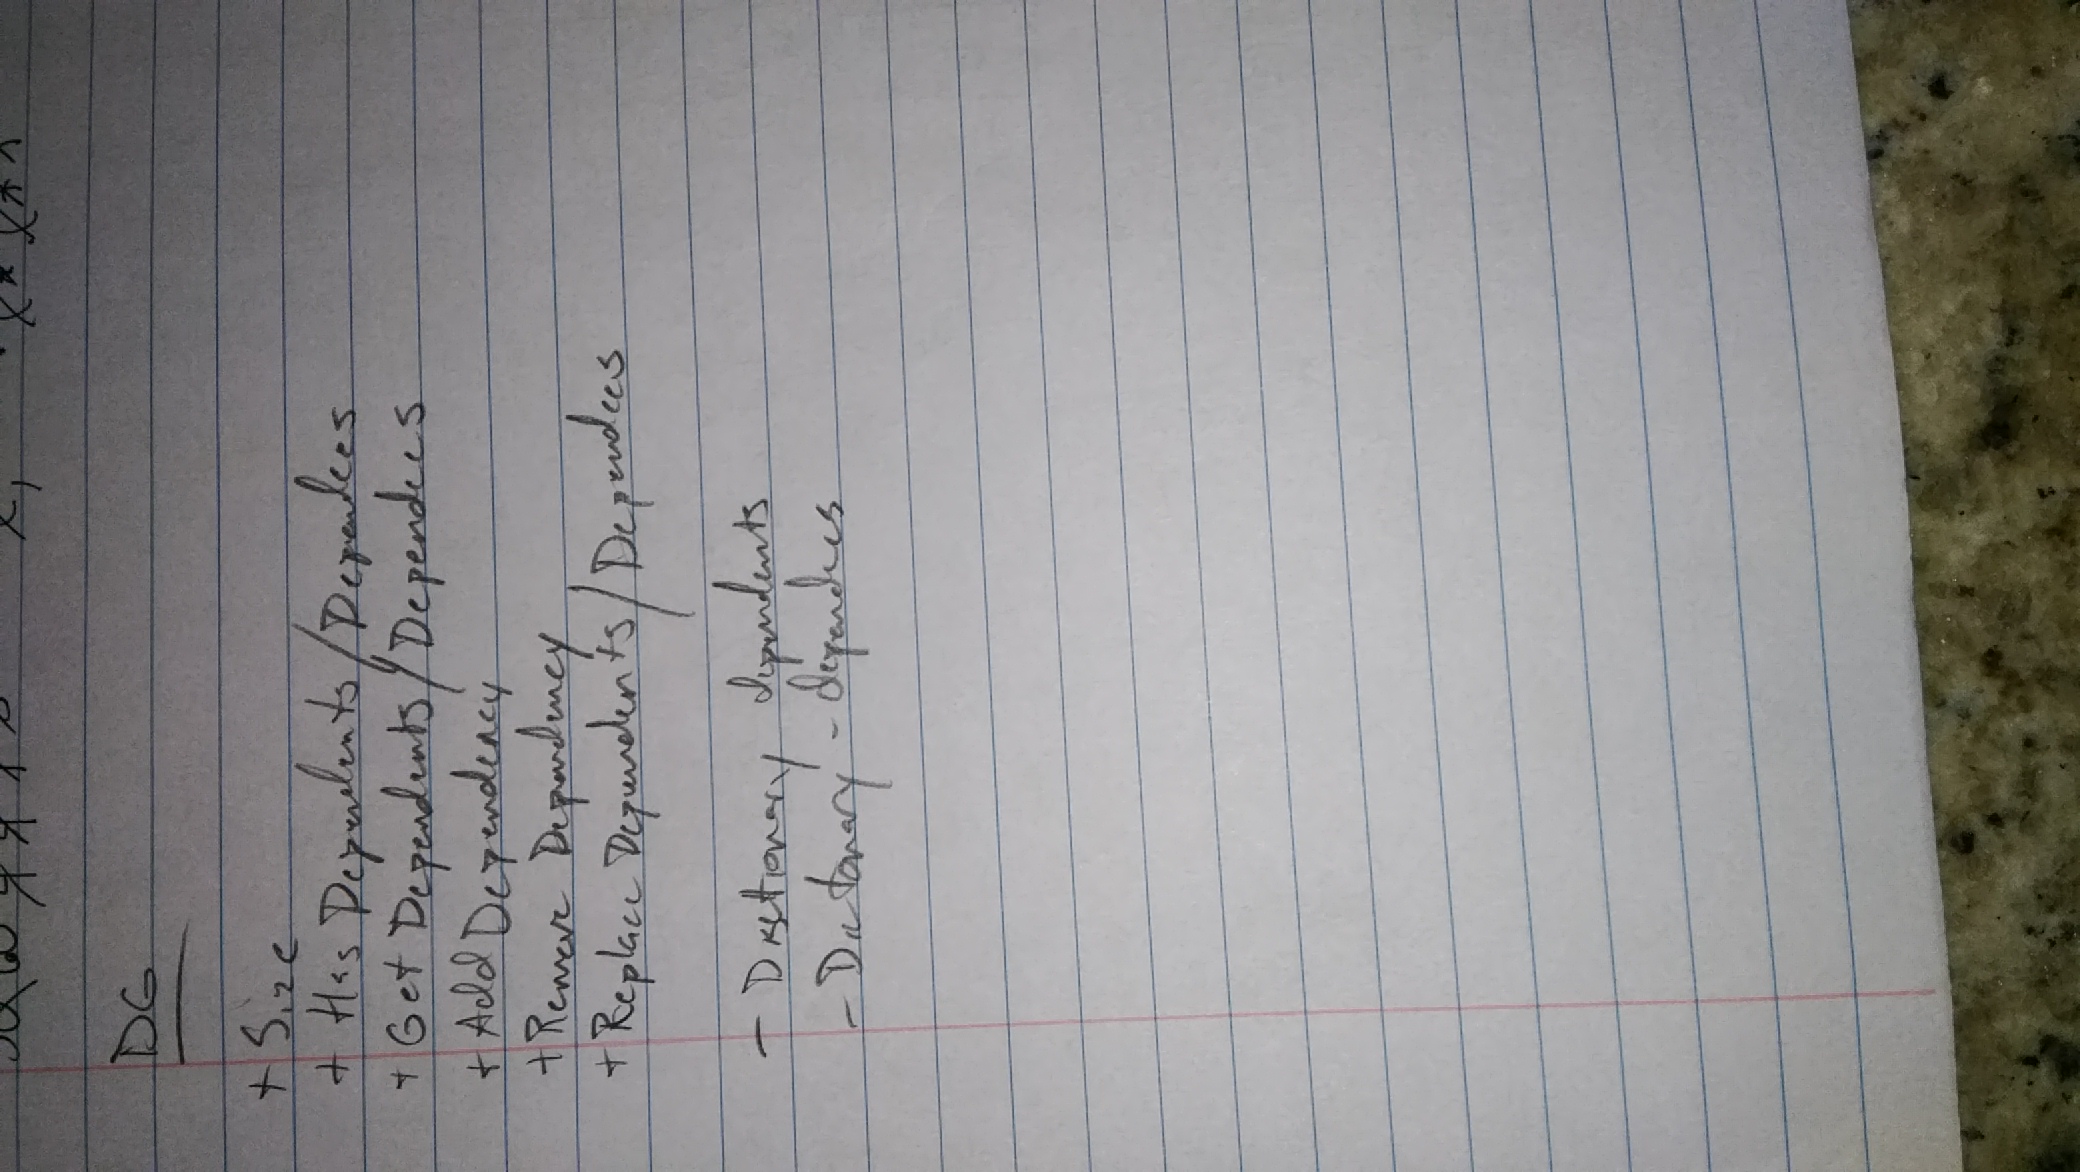 DG
+ Size
+ Has Dependents/Dependees
+ Get Dependents/Dependees
+ Add Dependency
+ Remove Dependency
+ Replace Dependents/Dependees
- Dictionary dependents
- Dictionary - dependees